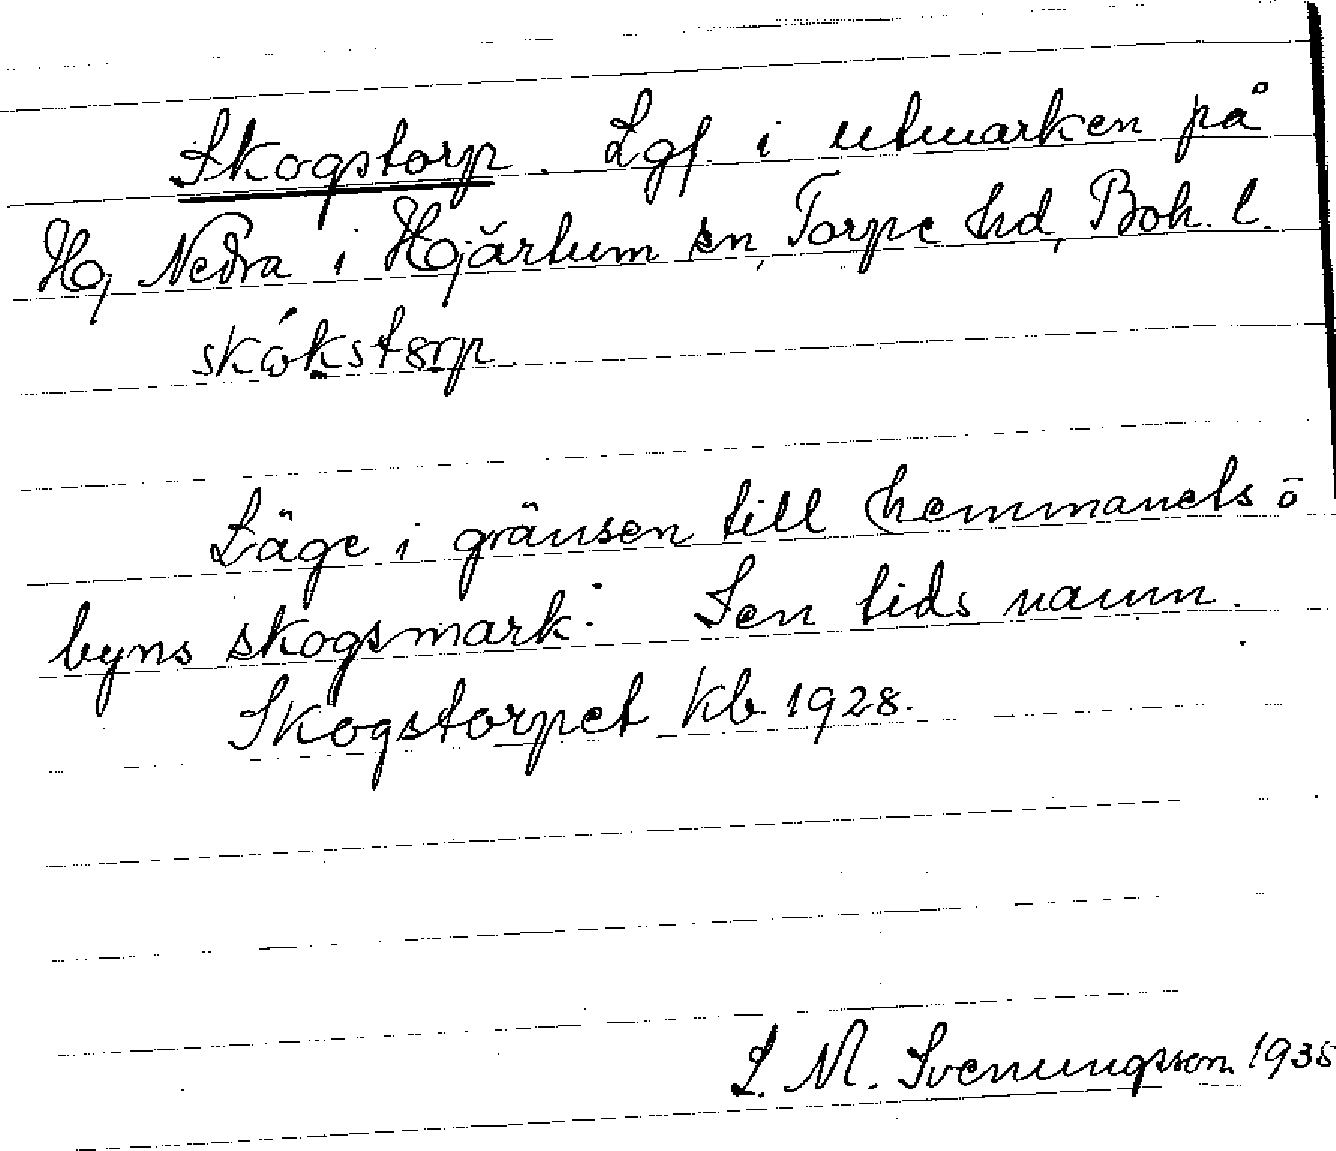 Skogstorp. Lgf i utmarken på
Hg, Nedra i Hjärtum sn, Torpe hd, Boh. l.
skókstorp
Läge i gränsen till hemmanets ö
byns skogsmark. Sen tids namn.
Skogstorpet kb 1928.
L. M. Svenungsson 1935